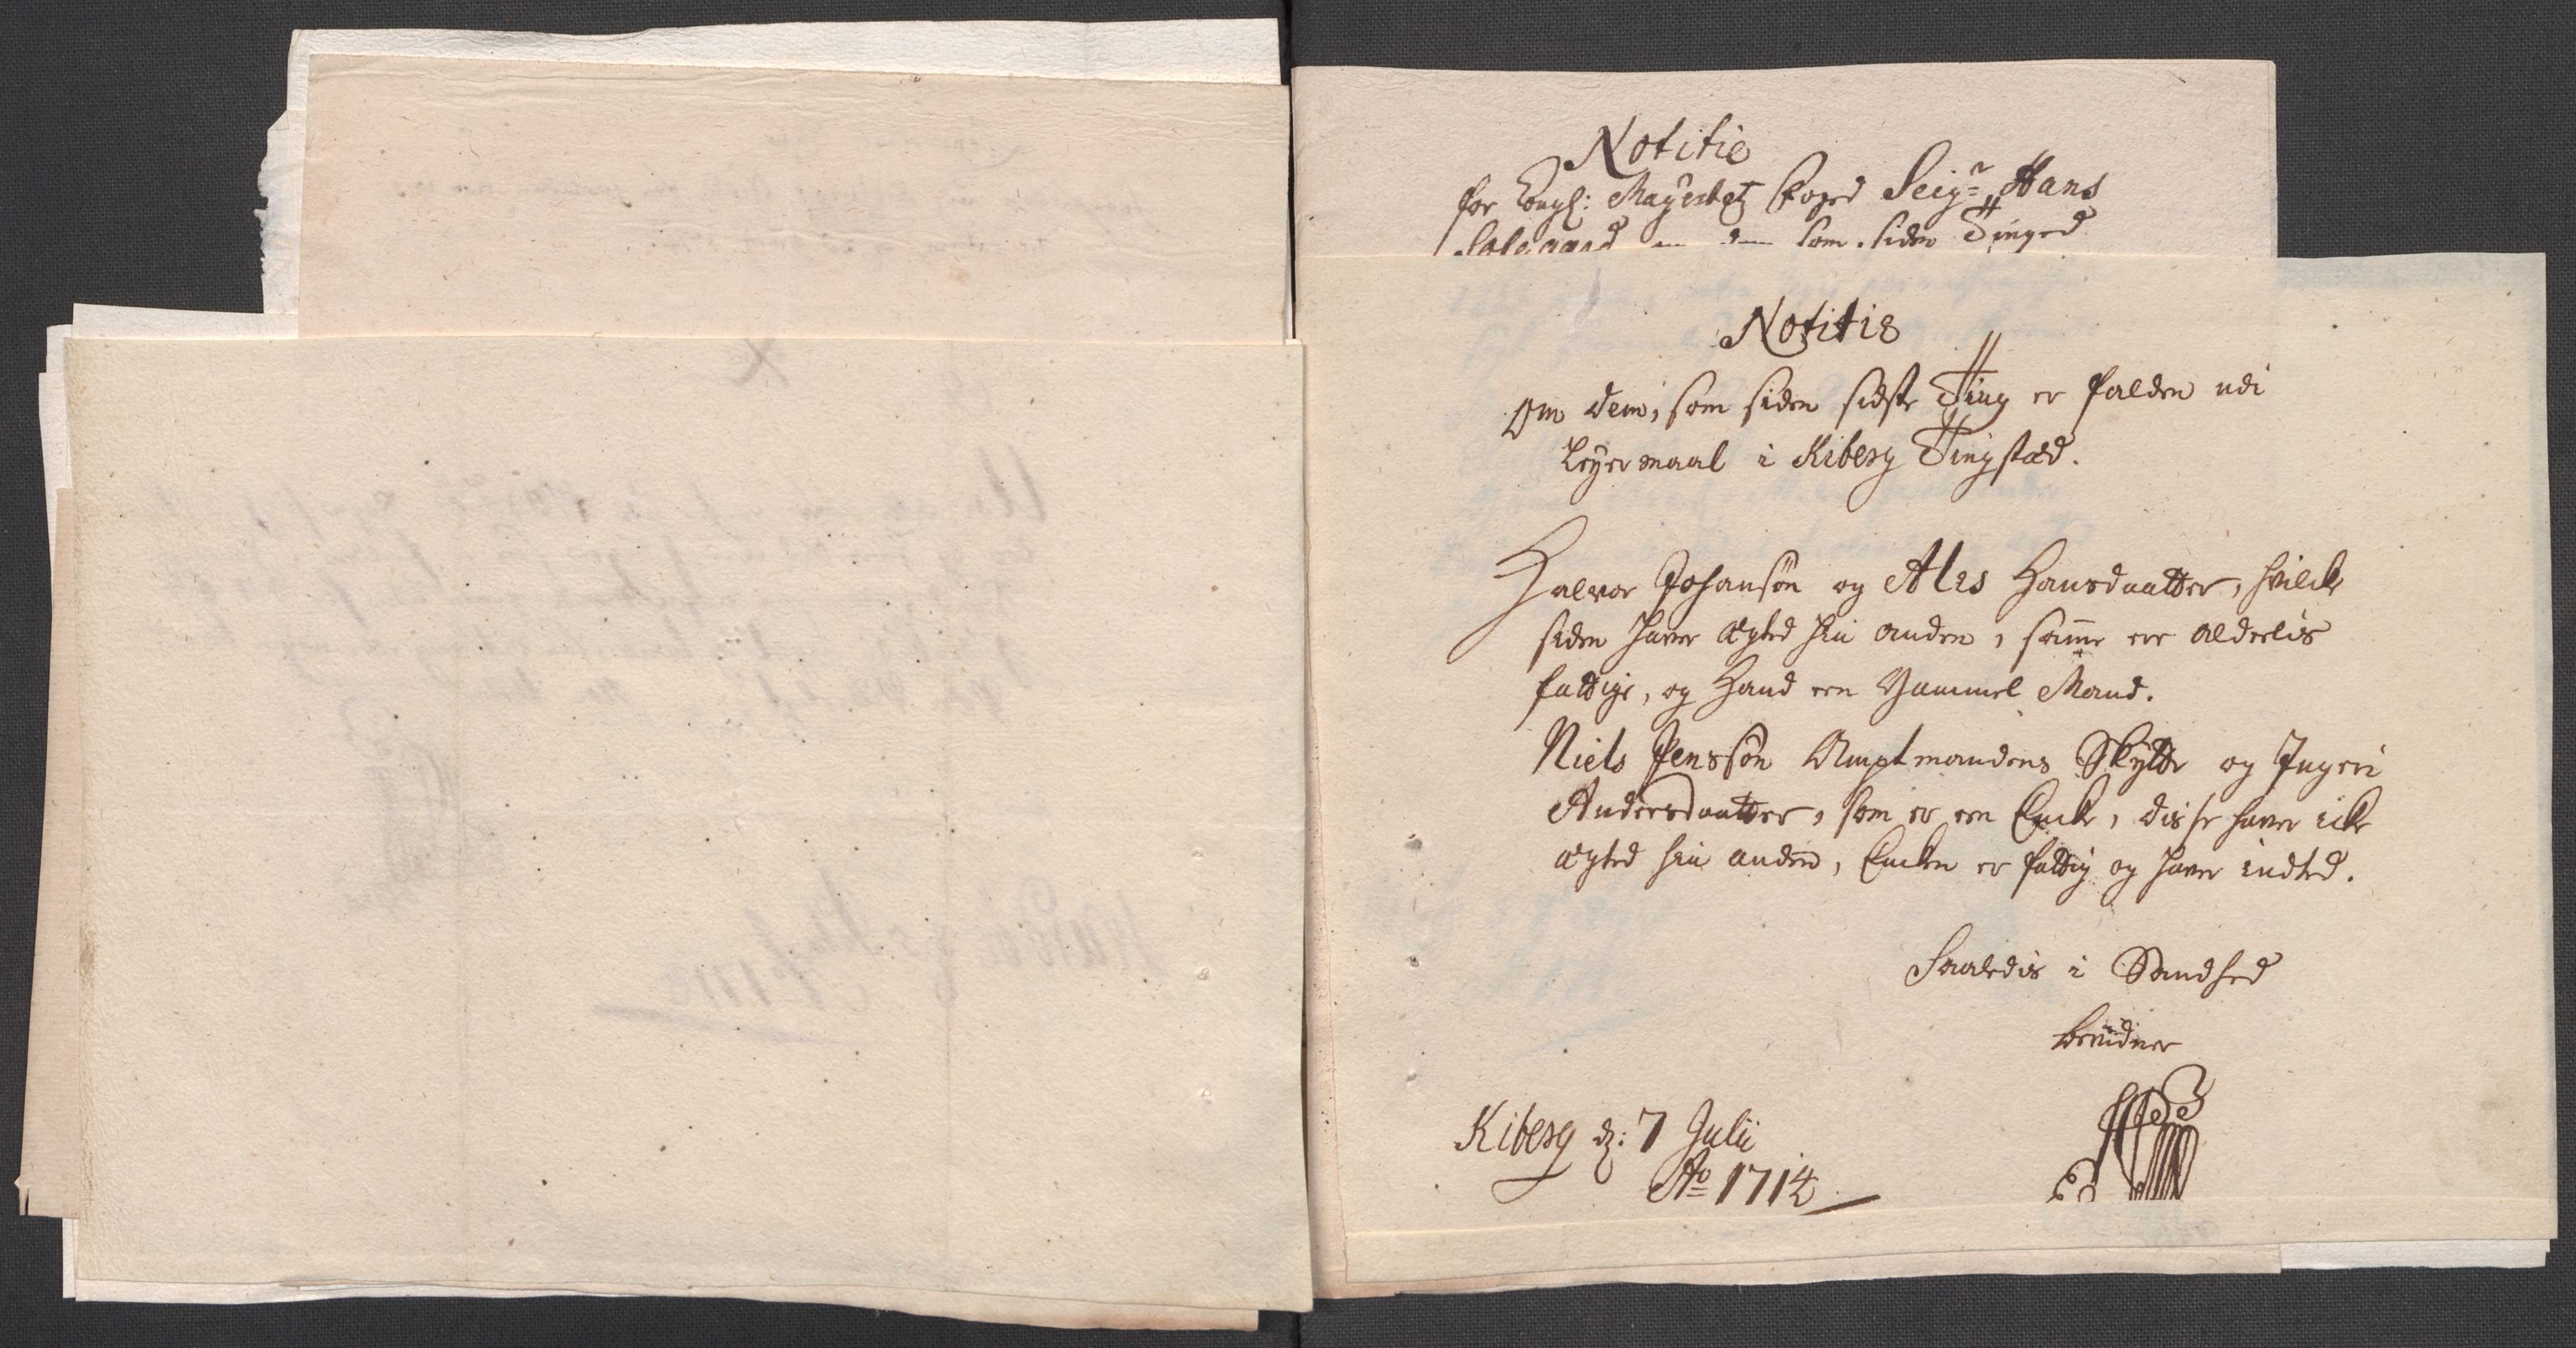 Notitie
for Kongl: Mayestetz Foged Seigr Hans
som siden Tinged
Notitie
Om dem, som siden sidste Ting er falden udi
Leyermaal i Kiberg Tingstæd.
Halvor Johansøn og Ales Hansdaatter, hvilcke
siden haver ægted hin anden, samme ere alderlis
fattige, og Hand een Gammel Mand.
Niels Jenssøn Amptmandens Skytte og Ingeri
Andersdaatter, som er een Encke, disse haver icke
ægted hin anden, Encken er fattig og haver indted.
Saaledis i Sandhed
bevidner
Kiberg d: 7 Julii
Ao 1714